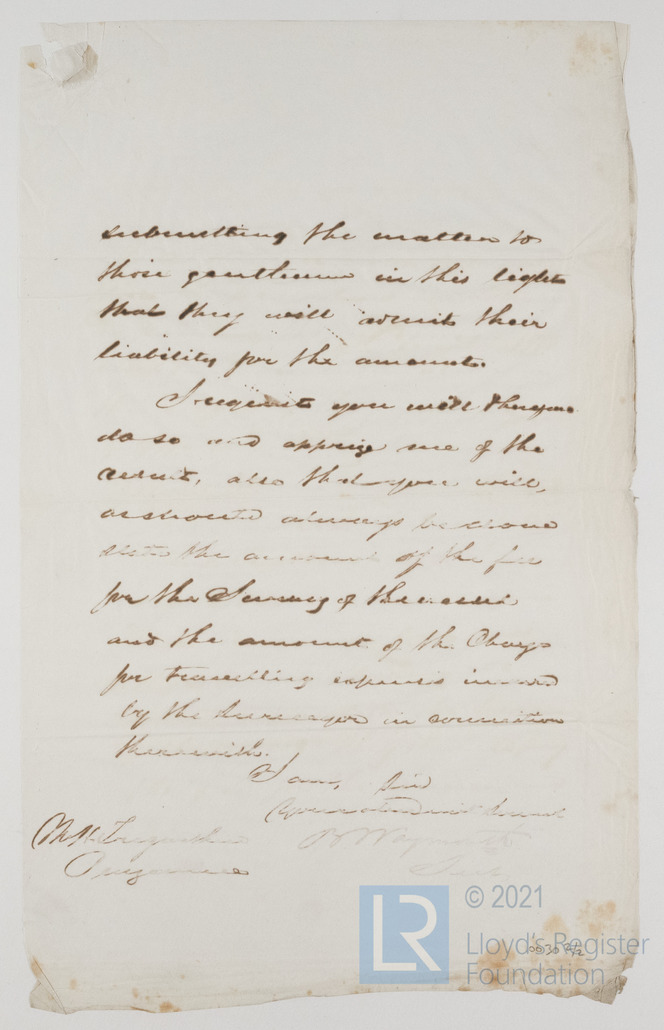 submitting the matter to
those gentlemen in this light
that they will admit their
liability for the amount.
I request you will therefore
do so and apprize me of the
result, also that you will,
as should always be done
state the amount of the fee
for the Survey of the vessel
and the amount of the Charge
for travelling expenses incurred
by the Surveyor in connection
therewith.
I am, Sir
Your obedient Servant
B Waymouth
Secy
Penzance
© 2021
Lloyd's Register
Foundation